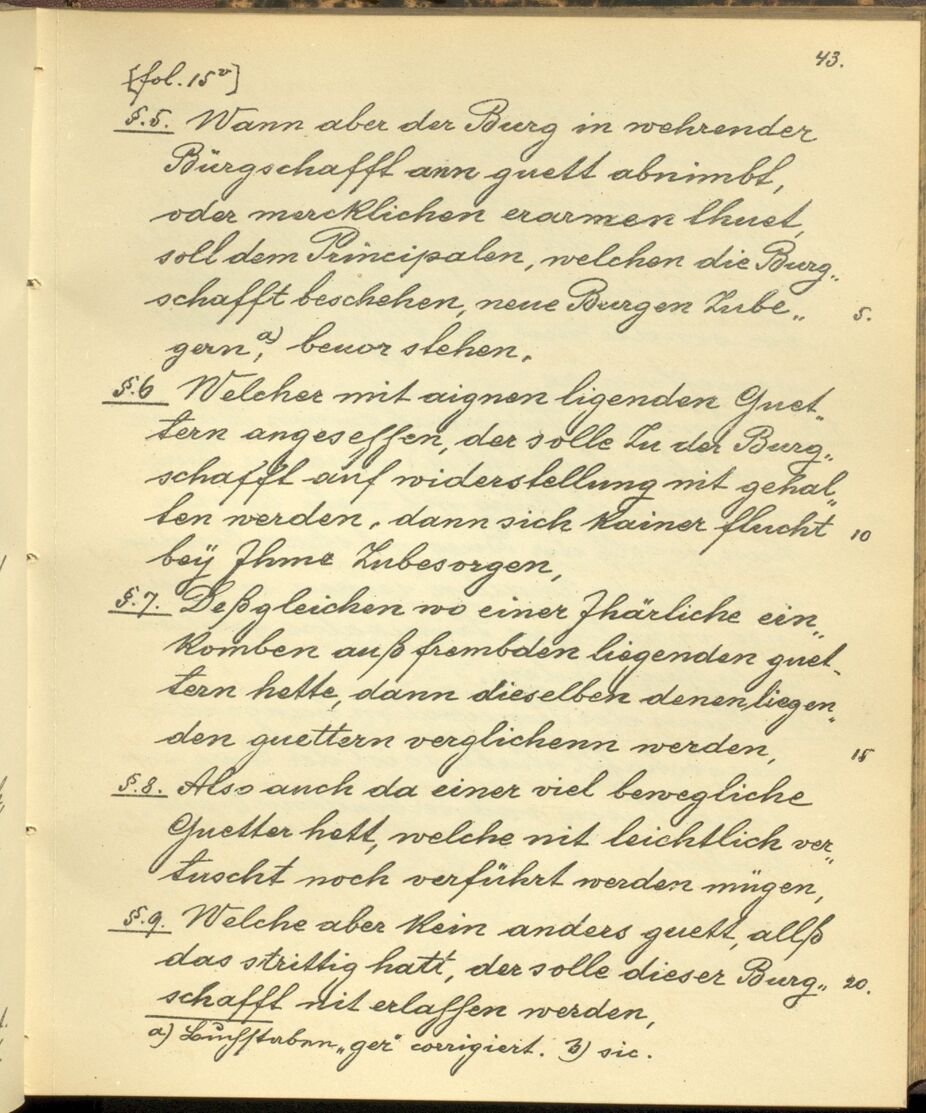 43.
[fol. 15v]
§.5. Wann aber der Burg in wehrender
Bürgschafft ann guett abnimbt,
oder mercklichen erarmen thuet,
soll dem Principalen, welchen die Burg„
schafft beschehen, neue Burgen Zube„ 5.
gern,a) beuor stehen.
§.6 Welcher mit aignen ligenden Guet„
tern angesessen, der solle Zu der Burg„
schafft auf widerstellung nit gehal„
ten werden, dann sich Kainer flucht 10
beÿ Ihme Zubesorgen,
§.7. Deßgleichen wo einer Jhärliche ein„
Komben auß frembden liegenden guet„
tern hette, dann dieselben denen liegen„
den guettern verglichenn werden, 15
§.8. Also auch da einer viel bewegliche
Guetter hett, welche nit leichtlich ver„
tuscht noch verführt werden mügen,
§.9. Welche aber Kein anders guett, allß
das strittig hatt, der solle dieser Burg„ 20.
schafft nit erlassen werden,
a) Buchstaben „ger" corrigiert. b) sic.